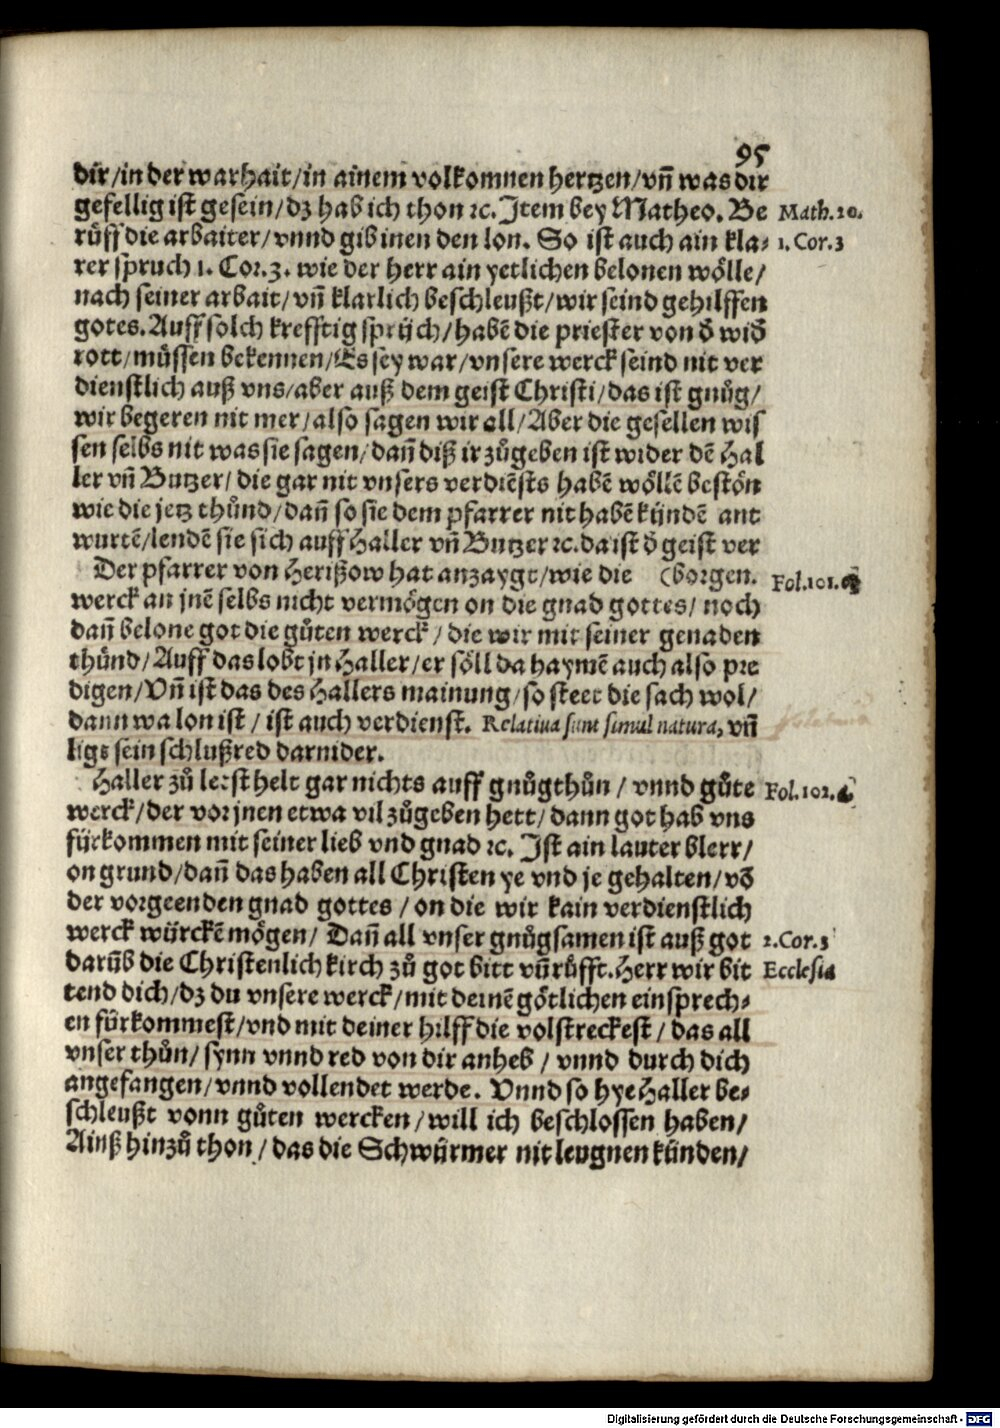 95
dir/in der warhait/in ainem volkomnen hertzen/vñ was dir
gefellig ist gesein/dz hab ich thon ꝛc. Item bey Matheo. Be Math.20.
růff die arbaiter/vnnd gib inen den lon. So ist auch ain kla⸗ 1.Cor.3
rer spruch 1. Cor.3. wie der herr ain yetlichen belonen wölle/
nach seiner arbait/vñ klarlich beschleußt/wir seind gehilffen
gotes. Auff solch krefftig sprüch/habẽ die priester von ð wið
rott/müssen bekennen/Es sey war/vnsere werck seind nit ver
dienstlich auß vns/aber auß dem geist Christi/das ist gnůg/
wir begeren nit mer/also sagen wir all/Aber die gesellen wis
sen selbs nit was sie sagen/dañ diß ir zůgeben ist wider dẽ Hal
ler vñ Butzer/die gar nit vnsers verdiẽsts habẽ wöllẽ bestõn
wie die jetz thůnd/dañ so sie dem pfarrer nit habẽ kündẽ ant
wurtẽ/lendẽ sie sich auff Haller vñ Butzer ꝛc. da ist ð geist ver
Der pfarrer von Herißow hat anzaygt/wie die (borgen. Fol.101.
werck an jnẽ selbs nicht vermögen on die gnad gottes/noch
dañ belone got die gůten werck/die wir mit seiner genaden
thůnd/Auff das lobt jn Haller/er söll da haymẽ auch also pre
digen/Vñ ist das des Hallers mainung/so steet die sach wol/
dann wa lon ist/ist auch verdienst. Relatiua sunt simul natura, vñ
ligt sein schlußred darnider.
Haller zů letst helt gar nichts auff gnůgthůn/vnnd gůte Fol.102.
werck/der vor jnen etwa vil zůgeben hett/dann got hab vns
fürkommen mit seiner lieb vnd gnad ꝛc. Ist ain lauter blerr/
on grund/dañ das haben all Christen ye vnd je gehalten/võ
der vorgeenden gnad gottes/on die wir kain verdienstlich
werck würckẽ mögen/Dañ all vnser gnůgsamen ist auß got 2.Cor.3
darũb die Christenlich kirch zů got bitt vñ růfft. Herr wir bit Ecclesia
tend dich/dz du vnsere werck/mit deinẽ götlichen einsprech⸗
en fürkommest/vnd mit deiner hilff die volstreckest/das all
vnser thůn/synn vnnd red von dir anheb/vnnd durch dich
angefangen/vnnd vollendet werde. Vnnd so hye Haller be⸗
schleußt vonn gůten wercken/will ich beschlossen haben/
Ainß hinzů thon/das die Schwürmer nit leugnen künden/
Digitalisierung gefördert durch die Deutsche Forschungsgemeinschaft - DFG